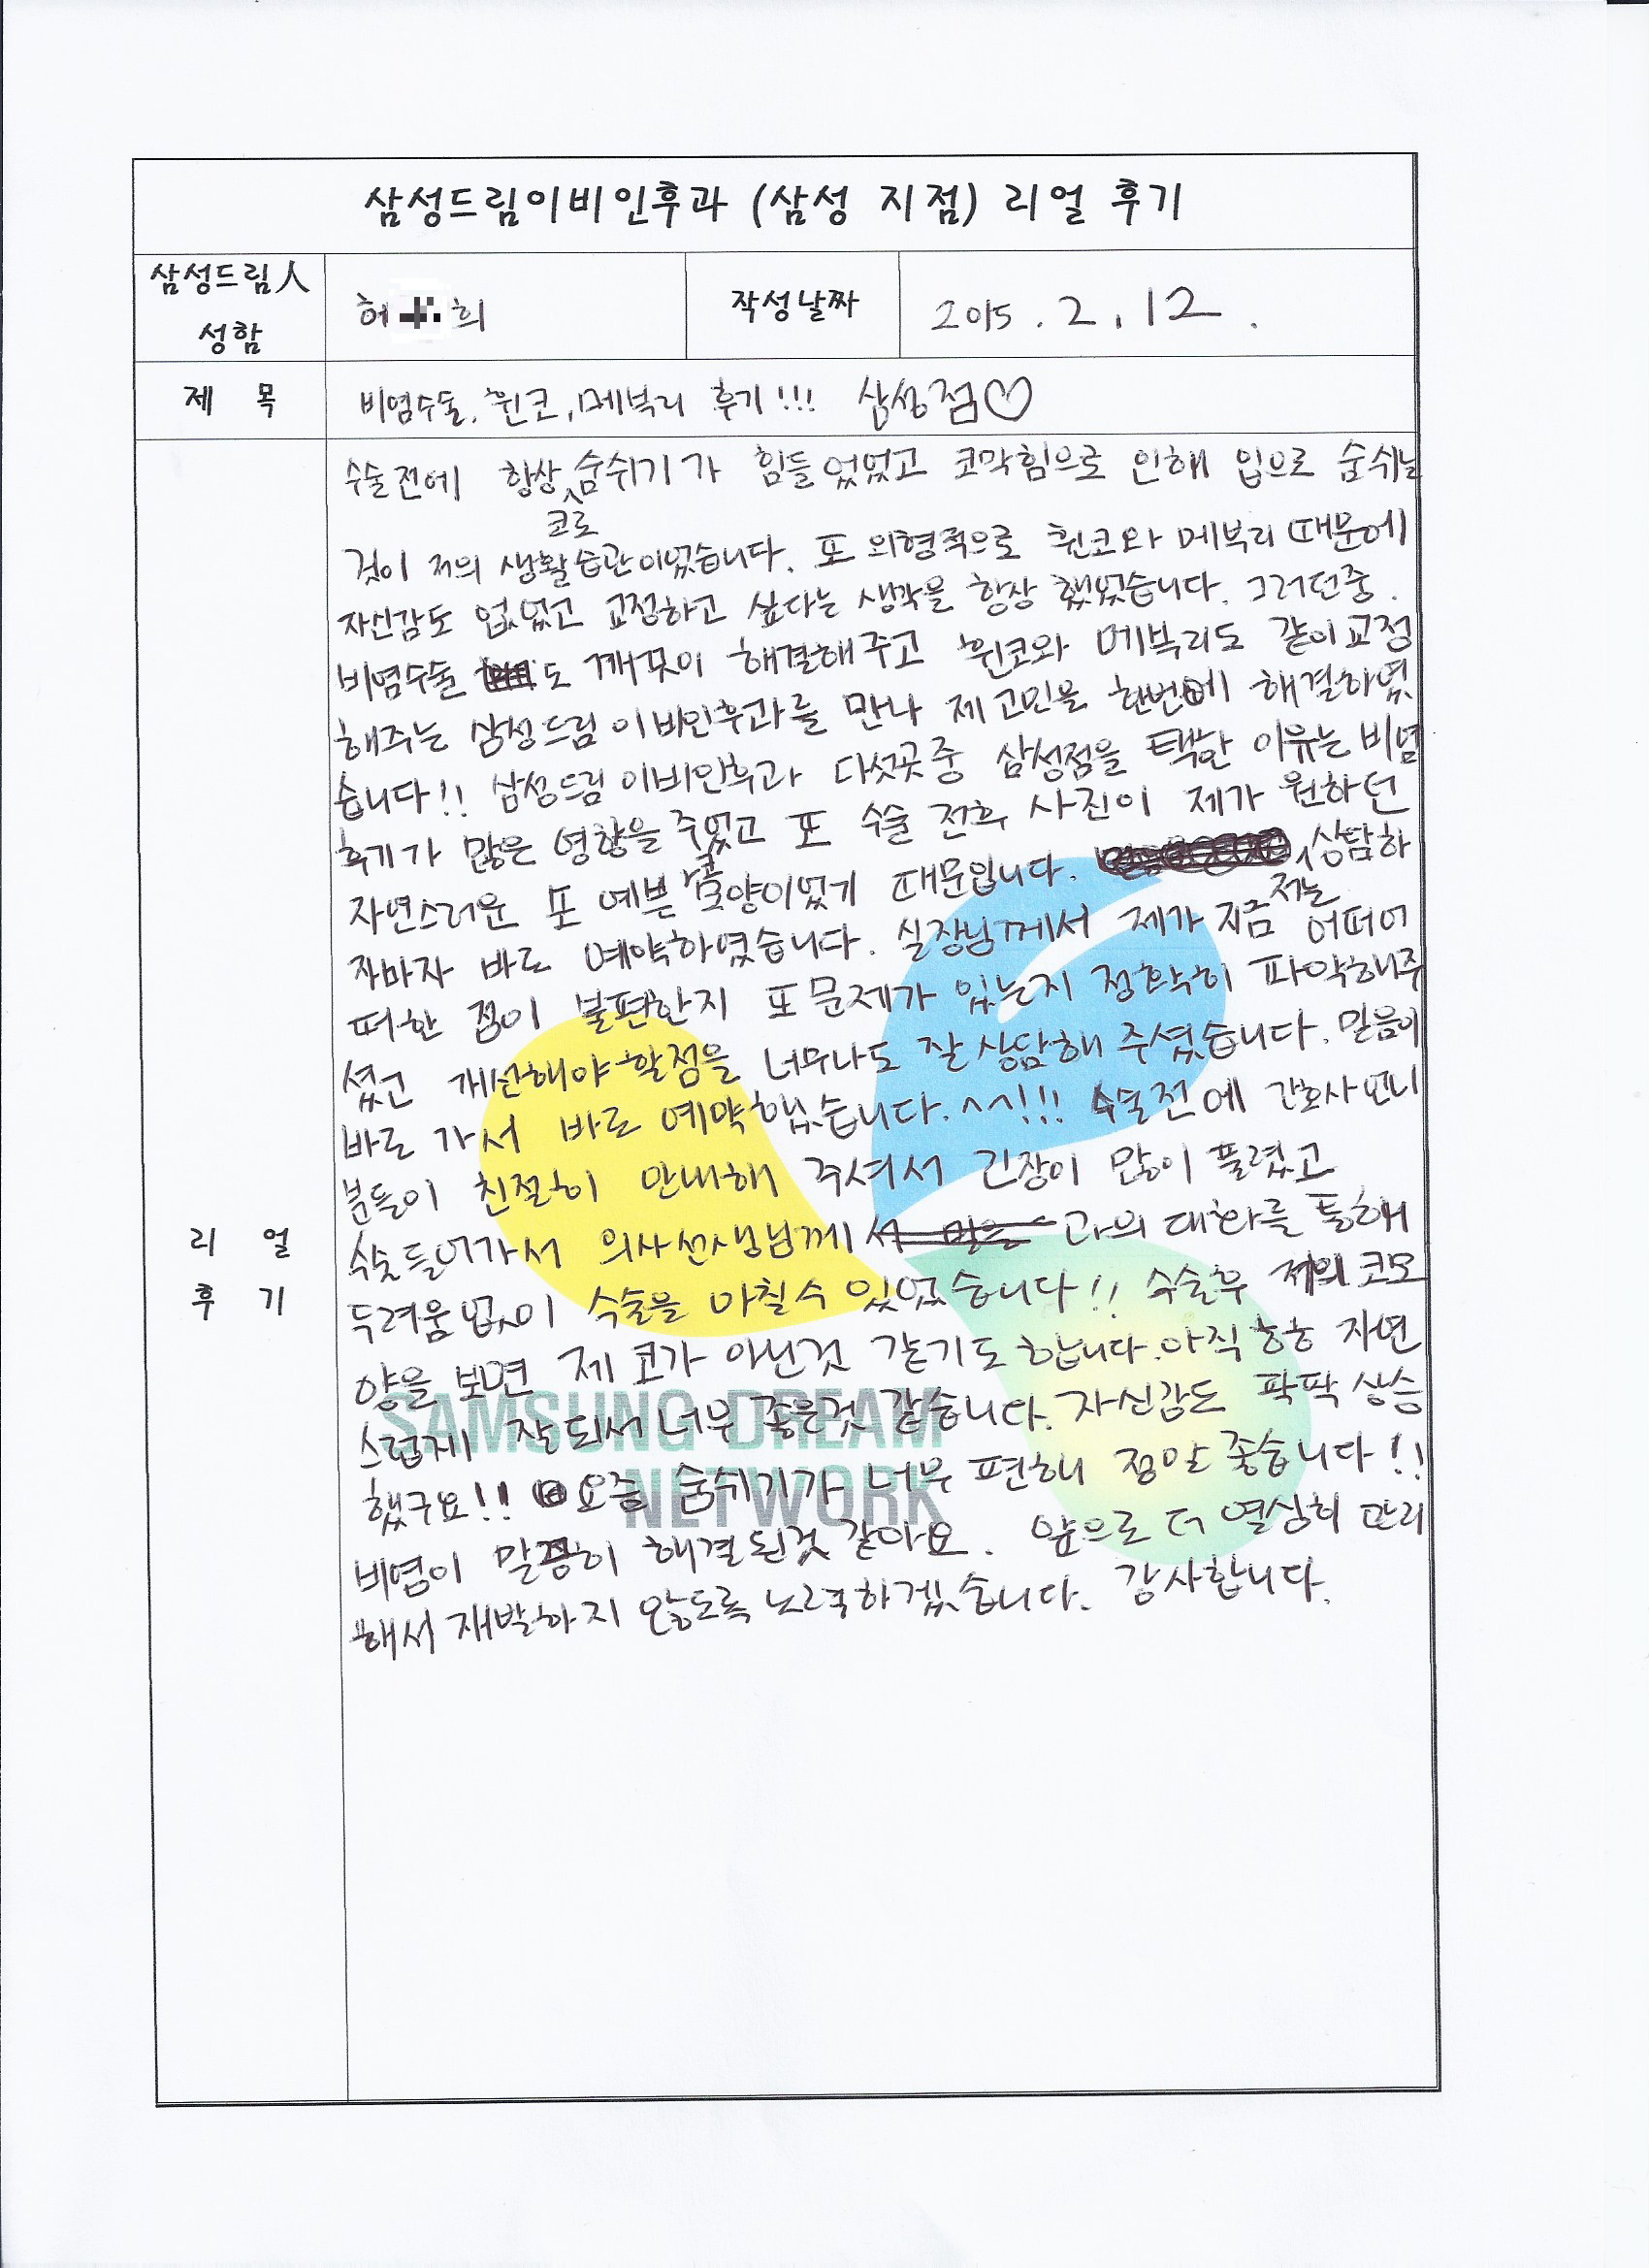 삼성드림이비인후과 (삼성 지점) 리얼 후기
삼성드림人
성함
허 희
작성날짜
2015. 2. 12.
제 목
비염수술, 휜코, 메부리 후기!!! 삼성점♡
리 얼
후 기
수술전에 항상 코로 숨쉬기가 힘들었었고 코막힘으로 인해 입으로 숨쉬는
것이 저의 생활습관이었습니다. 또 외형적으로 휜코와 메부리 때문에
자신감도 없었고 교정하고 싶다는 생각을 항상 했었습니다. 그러던중.
비염수술도 깨끗이 해결해주고 휜코와 메부리도 같이교정
해주는 삼성드림이비인후과를 만나 제고민을 한번에 해결하였
습니다!! 삼성드림이비인후과 다섯곳중 삼성점을 택한 이유는 비염
후기가 많은 영향을 주었고 또 수술 전후 사진이 제가 원하던
자연스러운 또 예쁜 코모양이었기 때문입니다. 저는 상담하
자마자 바로 예약하였습니다. 실장님께서 제가 지금 어떠어
떠한 점이 불편한지 또 문제가 있는지 정확히 파악해주
셨고 개선해야할점을 너무나도 잘 상담해 주셨습니다. 믿음이
바로 가서 바로 예약했습니다.^^!!! 수술전에 간호사언니
분들이 친절히 안내해 주셔서 긴장이 많이 풀렸고
수술 들어가서 의사선생님께 과의 대화를 통해
두려움없이 수술을 마칠수 있었습니다!! 수술후 제의 코모
양을 보면 제 코가 아닌것 같기도 합니다.아직 ㅎㅎ 자연
스럽게 잘되서 너무 좋은것 같습니다. 자신감도 팍팍 상승
했구요!! 요즘 숨쉬기가 너무 편해 정말 좋습니다!!
비염이 말끔히 해결된것 같아요. 앞으로 더 열심히 관리
해서 재발하지 않도록 노력하겠습니다. 감사합니다.
SAMSUNG DREAM
NETWORK